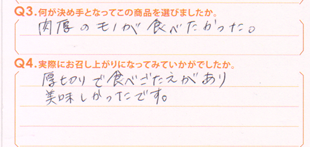 Q3.何が決め手となってこの商品を選びましたか。
肉厚のモノが食べたかった。
Q4.実際にお召し上がりになってみていかがでしたか。
厚切りで食べごたえがあり
美味しかったです。